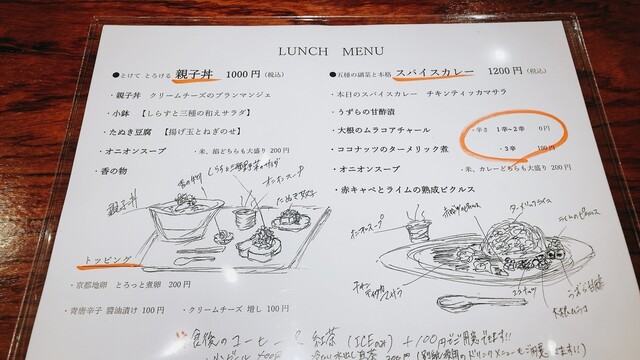 LUNCH MENU
●とけて とろける 親子丼 1000円(税込)
・親子丼 クリームチーズのブランマンジェ
・小鉢 【しらすと三種の和えサラダ】
・たぬき豆腐 【揚げ玉とねぎのせ】
・オニオンスープ ・米、餡どちらも大盛り 200円
・香の物
しらすと三種の和えサラダ
オニオンスープ
親子丼
トッピング
・京都地卵 とろっと煮卵 200円
・青唐辛子 醤油漬け 100円 ・クリームチーズ 増し 100円
●五種の副菜と本格 スパイスカレー 1200円(税込)
・本日のスパイスカレー チキンティッカマサラ
・うずらの甘酢漬
・大根のムラコアチャール
・ココナッツのターメリック煮
・辛さ 1辛~2辛 0円
・3辛 100円
・オニオンスープ ・米、カレーどちらも大盛り 200円
・赤キャベとライムの熟成ピクルス
オニオンスープ
ターメリックライス
ココナッツ
うずら甘酢
食後のコーヒー 紅茶 (ICEのみ) +100円でご用意できます!!